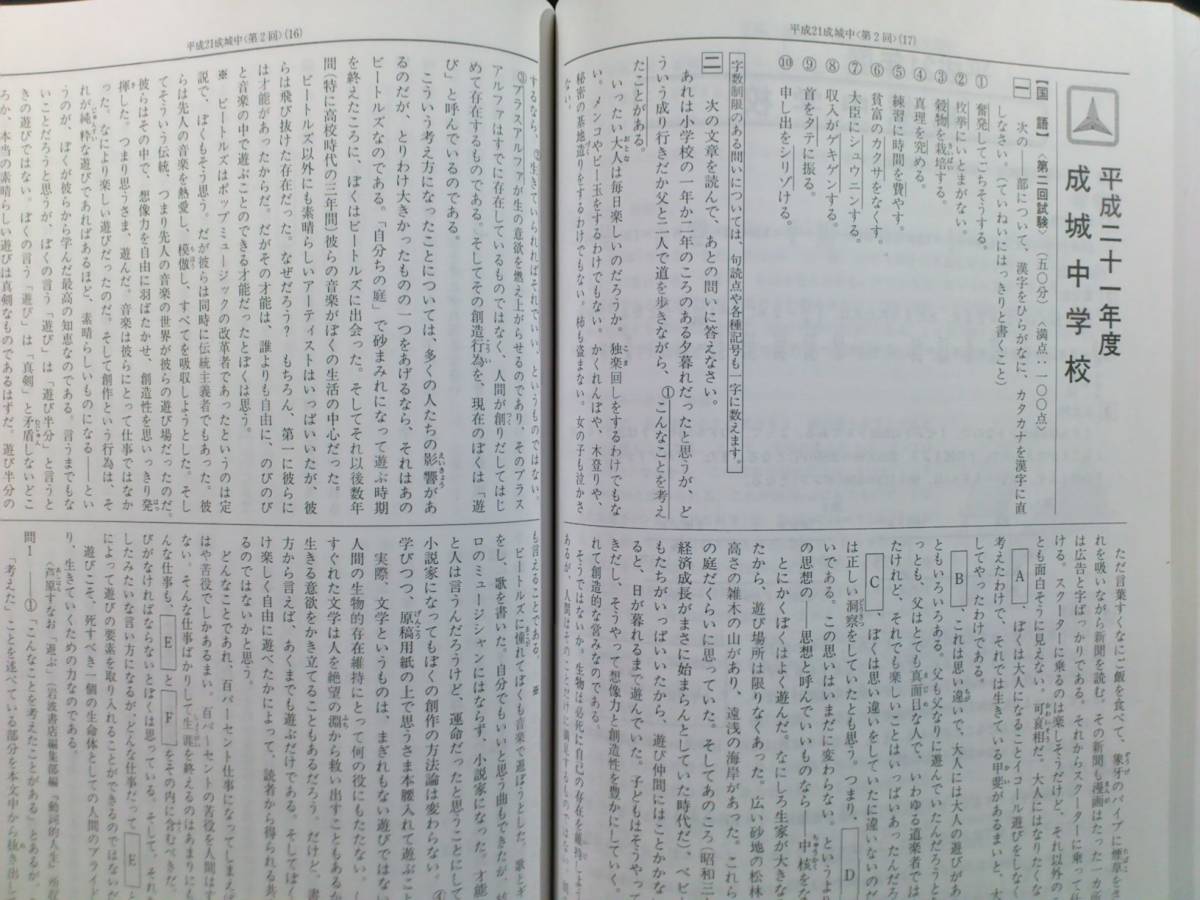 平成21成城中〈第2回〉(17)
平成二十一年度
成城中学校
【国 語】〈第二回試験〉（五〇分）〈満点：一〇〇点〉
一 次の――部について、漢字をひらがなに、カタカナを漢字に直
しなさい。（ていねいにはっきりと書くこと）
① 奮発してごちそうする。
② 枚挙にいとまがない。
③ 穀物を栽培する。
④ 真理を究める。
⑤ 練習に時間を費やす。
⑥ 貧富のカクサをなくす。
⑦ 大臣にシュウニンする。
⑧ 収入がゲキゲンする。
⑨ 首をタテに振る。
⑩ 申し出をシリゾける。
字数制限のある問いについては、句読点や各種記号も一字に数えます。
二 次の文章を読んで、あとの問いに答えなさい。
あれは小学校の一年か二年のころのある夕暮れだったと思うが、ど
ういう成り行きだか父と二人で道を歩きながら、①こんなことを考え
たことがある。
いったい大人は毎日楽しいのだろうか。独楽回しをするわけでもな
い。メンコやビー玉をするわけでもない。かくれんぼや、木登りや、
秘密の基地造りをするわけでもない。柿も盗まない。女の子も泣かさ
ない。
ただ言葉すくなにご飯を食べて、象牙のパイプに煙草をさ
れを吸いながら新聞を読む。その新聞も漫画はたった一か所
は広告と字ばっかりである。それからスクーターに乗って仕
る。スクーターに乗るのは楽しそうだけど、それ以外のこ
とも面白そうに見えない。可哀相だ。大人にはなりたくな
A、ぼくは大人になることイコール遊びをしなく
考えたわけで、それでは生きている甲斐があるまいと、大
してやったわけである。
B、これは思い違いで、大人には大人の遊びがあ
ともいろいろある。父も父なりに遊んでいたんだろうと
っとも、父はとても真面目な人で、いわゆる道楽者では
たけれど、それでも楽しいことはいっぱいあったんだろ
C、ぼくは思い違いをしていたに違いないのだ
は正しい洞察をしていたとも思う。つまり、D
いである。この思いはいまだに変わらない。というよ
の思想の――思想と呼んでいいものなら――中核をな
とにかくぼくはよく遊んだ。なにしろ生家が大き
たから、遊び場所は限りなくあった。広い砂地の松林
高さの雑木の山があり、遠浅の海岸があった。これら
の庭だくらいに思っていた。そしてあのころ（昭和三
経済成長がまさに始まらんとしていた時代だ、ベビ
もたちがいっぱいいたから、遊び仲間にはことかかな
ると、日が暮れるまで遊んでいた。子どもはそうやっ
きだし、そうやって想像力と創造性を豊かにしていく。
れて創造的な営みなのである。
そうではないか。生物は必死に自己の存在を維持しよう
あるが、人間はそのことだけに満足するものではない。
平成21成城中〈第2回〉(16)
するなら、②生きていられればそれでいい、というものではない。
③プラスアルファが生の意欲を燃え上がらせるのであり、そのプラス
アルファはすでに存在しているものではなく、人間が創りだしてはじ
めて存在するものである。そしてその創造行為を、現在のぼくは「遊
び」と呼んでいるのである。
こういう考え方になったことについては、多くの人たちの影響があ
るのだが、とりわけ大きかったものの一つをあげるなら、それはあの
ビートルズなのである。「自分ちの庭」で砂まみれになって遊ぶ時期
を終えたころに、ぼくはビートルズに出会った。そしてそれ以後数年
間（特に高校時代の三年間）彼らの音楽がぼくの生活の中心だった。
ビートルズ以外にも素晴らしいアーティストはいっぱいいたが、彼
らは飛び抜けた存在だった。なぜだろう？ もちろん、第一に彼らに
は才能があったからだ。だがその才能は、誰よりも自由に、のびのび
と音楽の中で遊ぶことのできる才能だったとぼくは思う。
※ ビートルズはポップミュージックの改革者であったというのは定
説で、ぼくもそう思う。だが彼らは同時に伝統主義者でもあった。彼
らは先人の音楽を熱愛し、模倣し、すべてを吸収しようとした。そし
てそういう伝統、つまり先人の音楽の世界が彼らの遊び場だったのだ。
彼らはその中で、想像力を自由に羽ばたかせ、創造性を思いっきり発
揮した。つまり思うさま、遊んだ。音楽は彼らにとって仕事ではなか
った。なにより楽しい遊びだったのだ。そして創作という行為は、そ
れが純粋な遊びであればあるほど、素晴らしいものになる――とい
うのが、ぼくが彼らから学んだ最高の知恵なのである。言うまでもな
いことだろうと思うが、ぼくの言う「遊び」は「遊び半分」と言うと
きの遊びではない。ぼくの言う「遊び」は「真剣」と矛盾しないどこ
ろか、本当の素晴らしい遊びは真剣なものであるはずだ。遊び半分の
も言えることである。 ※
ビートルズに憧れてぼくも音楽で遊ぼうとした。歌とギ
し、歌を書いた。自分でもいいと思う曲もできたが、結
ロのミュージシャンにはならず、小説家になった。才能
と人は言うんだろうけど、運命だったと思うことにして
小説家になってもぼくの創作の方法論は変わらない。
学びつつ、原稿用紙の上で思うさま本腰入れて遊ぶこ
実際、文学というものは、まぎれもない遊びではな
人間の生物的存在維持にとって何の役にもたたない。
すぐれた文学は人を絶望の淵から救い出すこともある
生きる意欲をかき立てることもあるだろう。だけど、書
方から言えば、あくまでも遊ぶだけである。
け楽しく自由に遊べたかによって、読者から得られる共
るのではないかと思う。
どんなことであれ、百パーセント仕事になってしまえば
はや苦役でしかあるまい。百パーセントの苦役を人間はす
ない。そんな仕事ばかりして生涯を終えるのはあまりにも
んな仕事も、EとFをその内に含むべきだ。
びがなければならないとぼくは思っている。そして、それ
したみたいな言い方になるが、どんな仕事だってE
によって遊びの要素を取り入れることができるのではない
遊びこそ、死すべき一個の生命体としての人間のプライド
り、生きていくための力なのである。
〈芦原すなお「遊ぶ」（岩波書店編集部編『動詞的人生』所収
問1 ――①「こんなことを考えたことがある」とあるが、
「考えた」ことを述べている部分を本文中から抜き出し